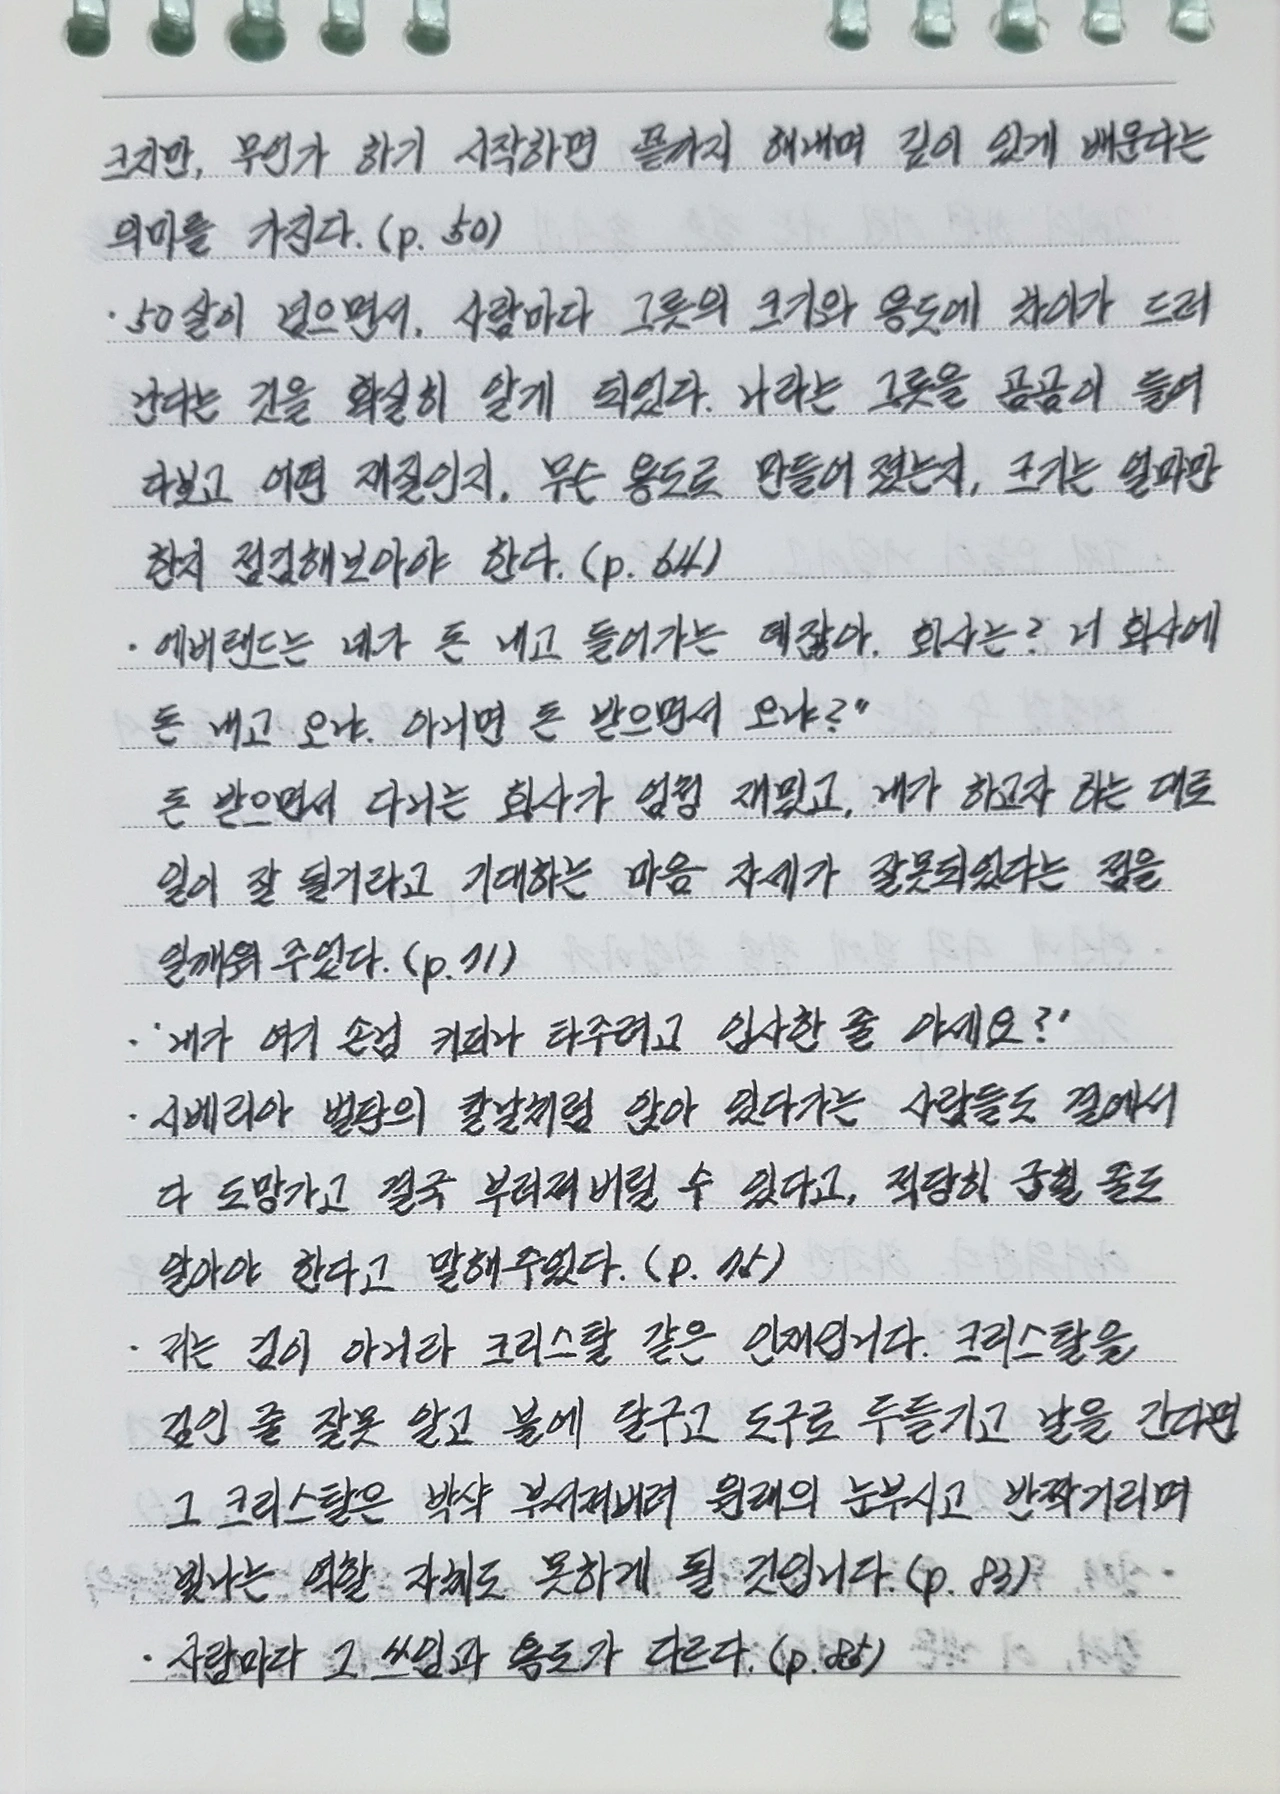 크지만, 무언가 하기 시작하면 끝까지 해내며 깊이 있게 배운다는
의미를 가진다. (p. 50)
· 50살이 넘으면서, 사람마다 그릇의 크기와 용도에 차이가 드러
난다는 것을 확실히 알게 되었다. 나라는 그릇을 곰곰이 들여
다보고 어떤 재질인지, 무슨 용도로 만들어졌는지, 크기는 얼마만
한지 점검해보아야 한다. (p. 64)
· 에버랜드는 네가 돈 내고 들어가는 데잖아. 회사는? 너 회사에
돈 내고 오냐. 아니면 돈 받으면서 오냐?"
돈 받으면서 다니는 회사가 엄청 재밌고, 내가 하고자 하는 대로
일이 잘 될거라고 기대하는 마음 자세가 잘못되었다는 점을
일깨워 주었다. (p. 71)
· '내가 여기 손님 커피나 타주려고 입사한 줄 아세요?'
· 시베리아 벌판의 칼날처럼 앉아 있다가는 사람들도 곁에서
다 도망가고 결국 부러져버릴 수 있다고, 적당히 굽힐 줄도
알아야 한다고 말해주었다. (p. 75)
· 저는 검이 아니라 크리스탈 같은 인재입니다. 크리스탈을
검인 줄 잘못 알고 불에 달구고 도구로 두들기고 날을 간다면
그 크리스탈은 박살 부서져버려 원래의 눈부시고 반짝거리며
빛나는 역할 자체도 못하게 될 것입니다. (p. 83)
· 사람마다 그 쓰임과 용도가 다르다. (p. 85)